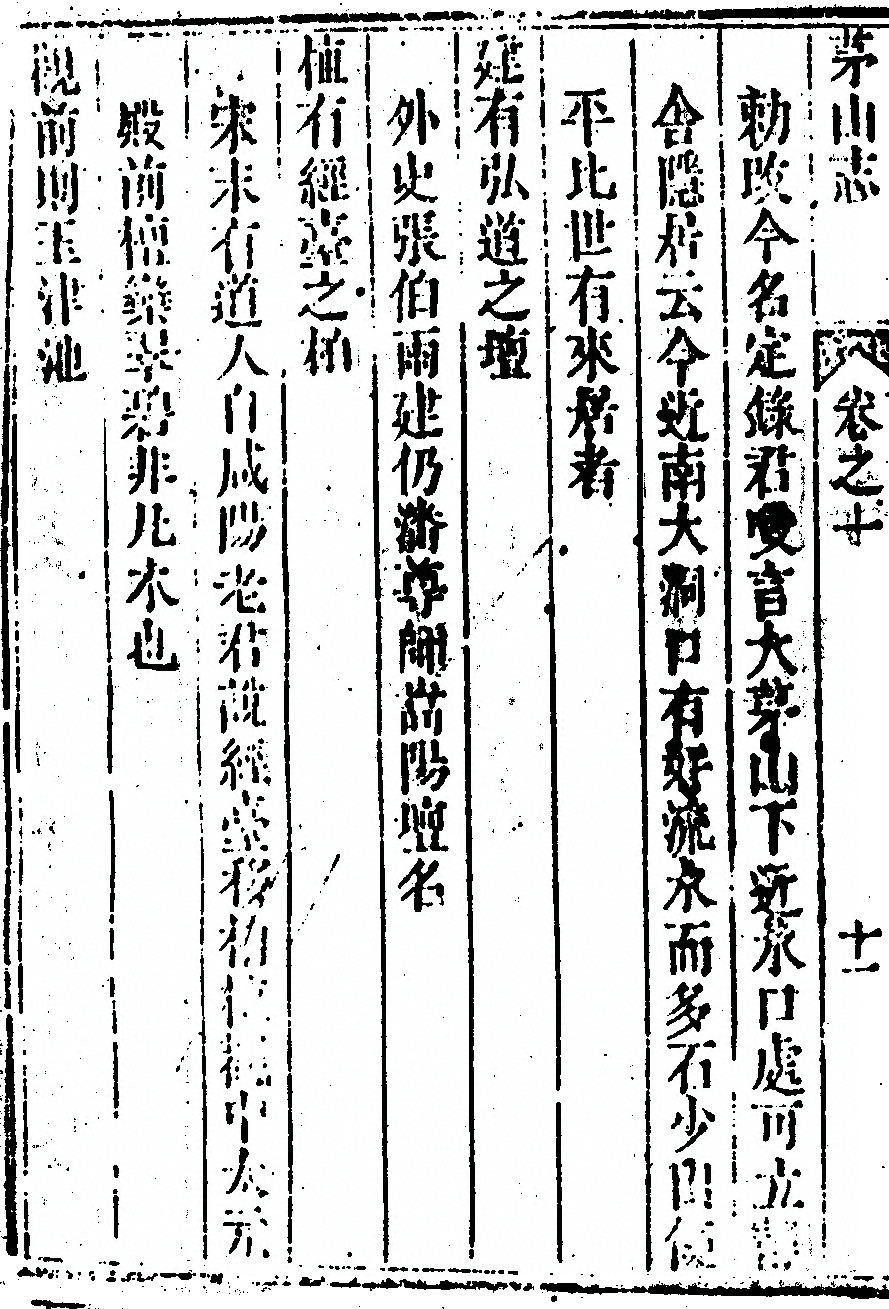 茅山志 卷之十 十一
勅改今名定錄君雙言大茅山下近泉口處可立
舍隱居云今近南大洞口有好流水而多石少出便
平比世有來居者
建有弘道之壇
外史張伯雨建仍潘尊師嵩陽壇名
植有經臺之柏
宋末有道人自咸陽老君說經臺移柏植觀中太元
殿前檀欒翠碧非凡木也
觀前則玉津池